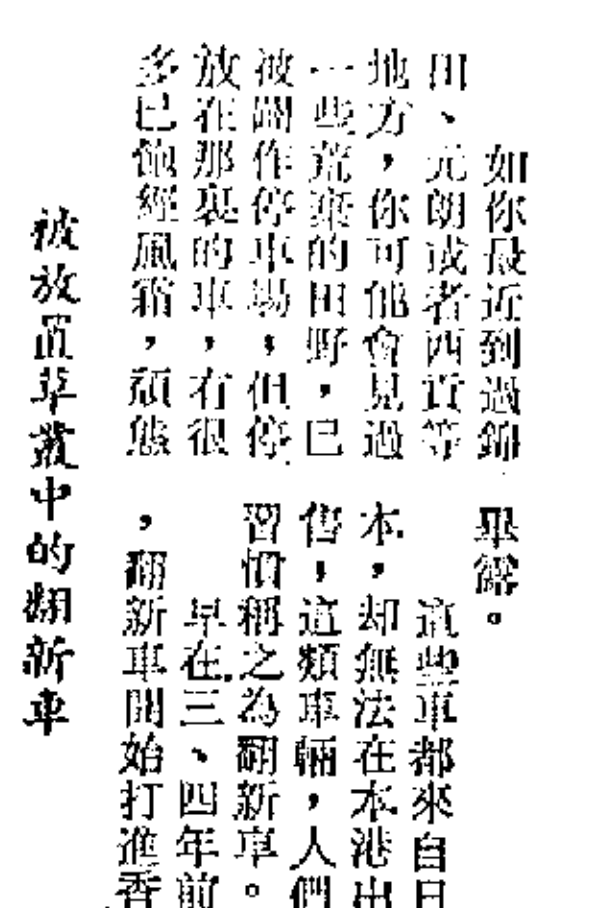 如你最近到過錦
田、元朗或者西貢等
地方，你可能會見過
一些荒棄的田野，已
被闢作停車場，但停
放在那裏的車，有很
多已飽經風霜，頹態
畢露。
這些車都來自日
本，却無法在本港出
售，這類車輛，人們
習慣稱之為翻新車。
早在三、四年前
，翻新車開始打進香
被放置草叢中的翻新車